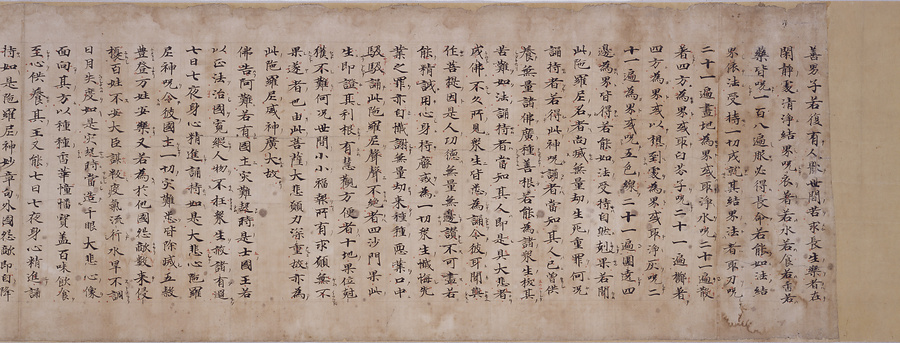 善男子若復有人厭世間苦求長生樂者在
閑靜處清淨結界呪衣者若水若食若香若
藥皆呪一百八遍服必得長命若能如法結
界依法受持一切成就其結界法者取刀呪
二十一遍畫地為界或取淨水呪二十一遍散
著四方為界或取白芥子呪二十一遍擲著
四方為界或以想到處為界或取淨灰呪二
十一遍為界或呪五色線二十一遍圍遶四
邊為界皆得若能如法受持自然剋果若聞
此陀羅尼名者尚滅無量劫生死重罪何況
誦持者若得此神呪誦者當知其人已曾供
養無量諸佛廣種善根若能為諸眾生拔其
苦難如法誦持者當知其人即是具大悲者
成佛不久所見眾生皆悉為誦令彼耳聞與
作菩提因是人功德無量無邊讚不可盡若
能精誠用心身持齋戒為一切眾生懺悔先
業之罪亦自懺謝無量劫來種種惡業口中
馺馺誦此陀羅尼聲聲不絕者四沙門果此
生即證其利根有慧觀方便者十地果位剋
獲不難何況世間小小福報所有求願無不
果遂者也由此菩薩大悲願力深重故亦為
此陀羅尼威神力廣大故
佛告阿難若有國土灾難起時是土國王若
以正法治國寬縱人物不枉眾生赦諸有過
七日七夜身心精進誦持如是大悲心陀羅
尼神呪令彼國土一切灾難悉皆除滅五穀
豐登万姓安樂又若為於他國怨敵數來侵
擾百姓不安大臣謀叛疫氣流行水旱不調
日月失度如是灾起時當造千眼大悲心像
面向其方以種種香華幢幡寶蓋百味飲食
至心供養其王又能七日七夜身心精進誦
持如是陀羅尼神妙章句外國怨敵即自降